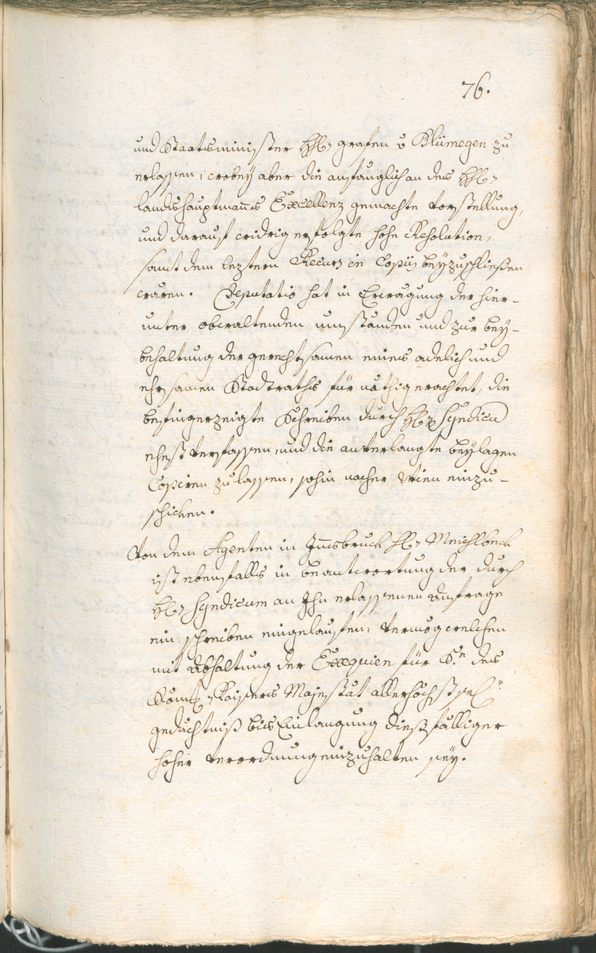 76.
und Staatsminister H: grafen v Blümegen zu
erlassen, wobey aber die anfänglich an des H:
landshauptmanns Excellenz gemachte vorstellung,
und darauf widrig erfolgte hohe Resolution,
samt dem leztern Recurs in Copiis beyzuschliessen
wären. Deputatio hat in Erwägung der hier-
unter obwaltenden umständen und zur bey-
behaltung der gerechtsamen eines adelich und
ehrsamen Stadtraths für nöthig erachtet, die
befingerzeigte Schreiben durch H: Syndicu
ehest verfassen, und die anverlangte beylagen
Copieren zu lassen, sohin nacher Wien einzu-
schicken.
Von dem Agenten in Innsbruck H: Meichlbeck
ist ebenfalls in beantwortung der durch
H: Syndicum an Ihn erlassenen anfrage
ein schreiben eingelaufen, vermög welchen
mit Abhaltung der Exequien für Sr. des
Röm: Kaysers Majestät allerhöchst seel:
gedächtniß bis Einlangung diesfälliger
hoher verordnung einzuhalten sey.